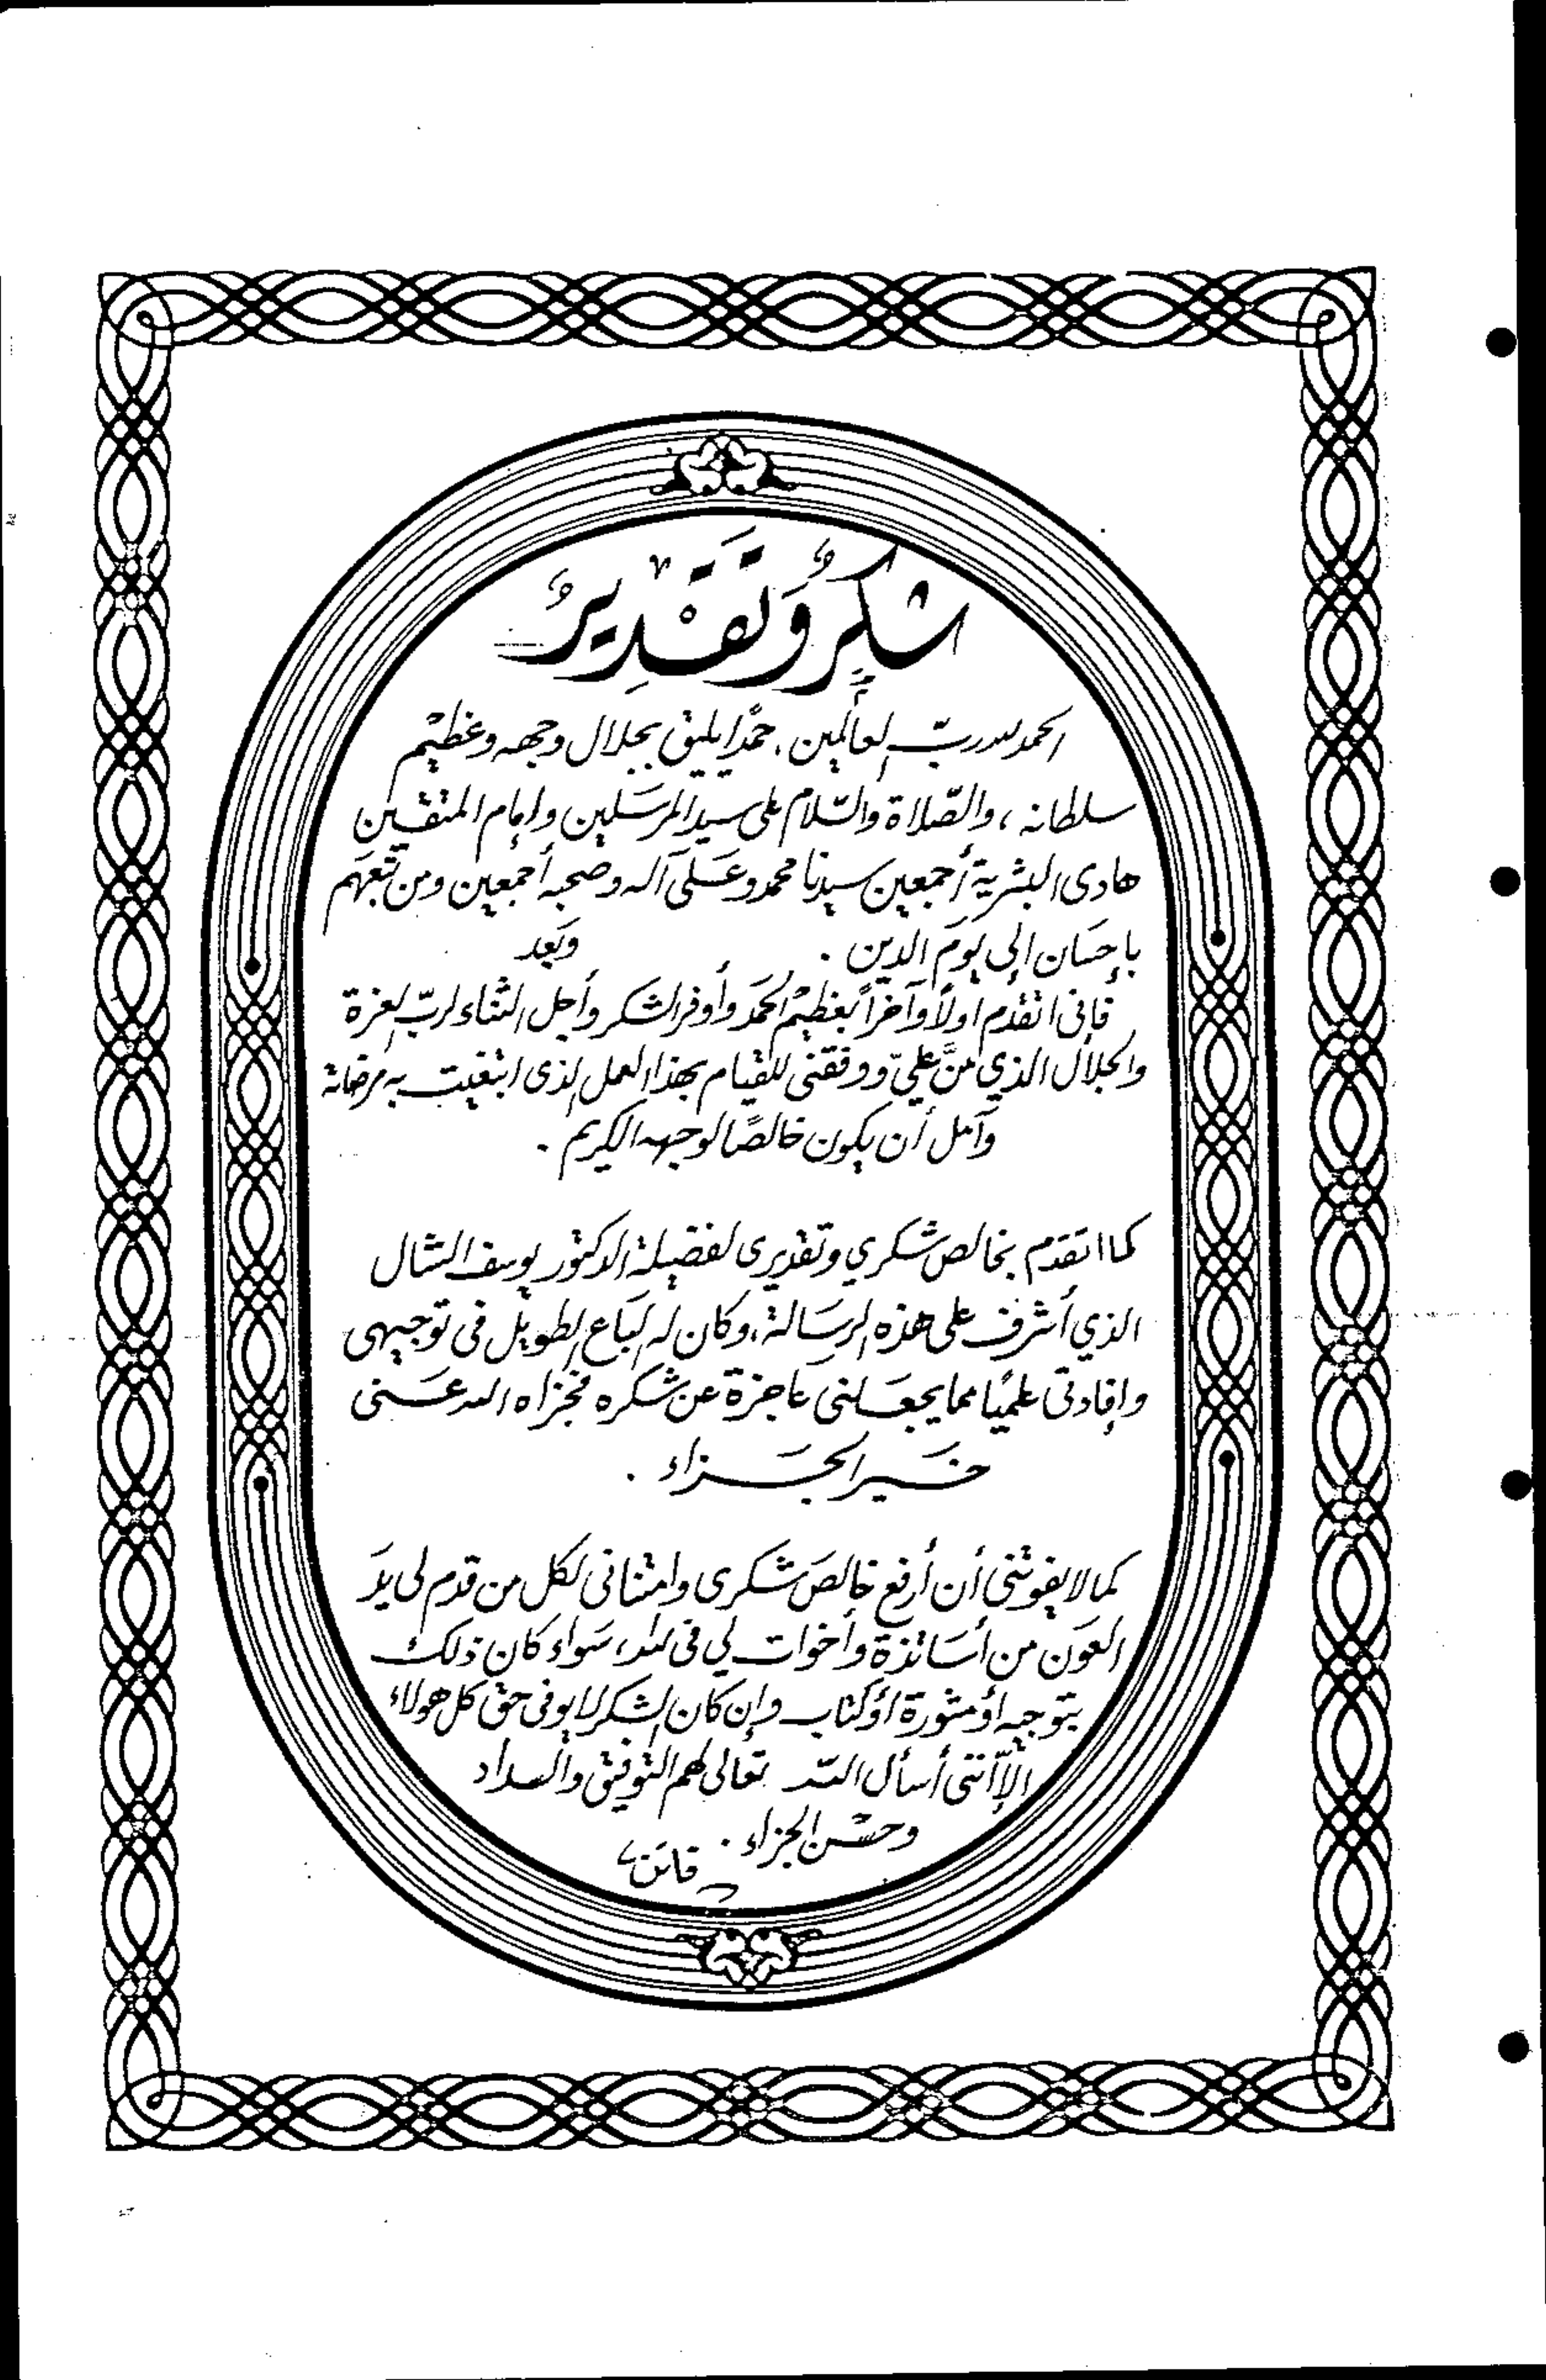 شكرٌ وَتَقْدِيرٌ
الحمد لله ربّ العالمين، حمدًا يليق بجلال وجهه وعظيم
سلطانه، والصّلاة والسّلام على سيد المرسَلين وإمام المتقين
هادى البشرية أجمعين سيدنا محمد وعَلى آله وصحبه أجمعين ومن تبعَهم
بإحسَان إلى يومَ الدين . وبَعد
فإنى اتقدم اولاً وآخراً بعظيم الحمَد وأوفر الشكر وأجل الثناء لربّ العزة
والجلال الذي منَّ عليّ ووفقنى للقيام بهذا العمل الذى ابتغيت به مرضاته
وآمل أن يكون خالصًا لوجهه الكريم .
كما اتقدم بخالص شكري وتقديرى لفضيلة الدكتور يوسف الشال
الذي أشرف على هذه الرسَالة، وكان له البَاع الطويل فى توجيهى
وإفادتى علميًا مما يجعَلنى عاجزة عن شكره فجزاه الله عَنى
خَير الجَزاء .
كما لا يفوتنى أن أرفع خالصَ شكرى وامتنانى لكل من قدم لى يدَ
العوَن من أسَاتذة وأخوات لي فى الله، سَواء كان ذلك
بتوجيه أو مشورة أو كتاب وإن كان الشكر لا يوفى حق كل هولاء
إلاّ أننى أسأل الله تعالى لهم التوفيق والسداد
وحسْن الجزاء . فاتن